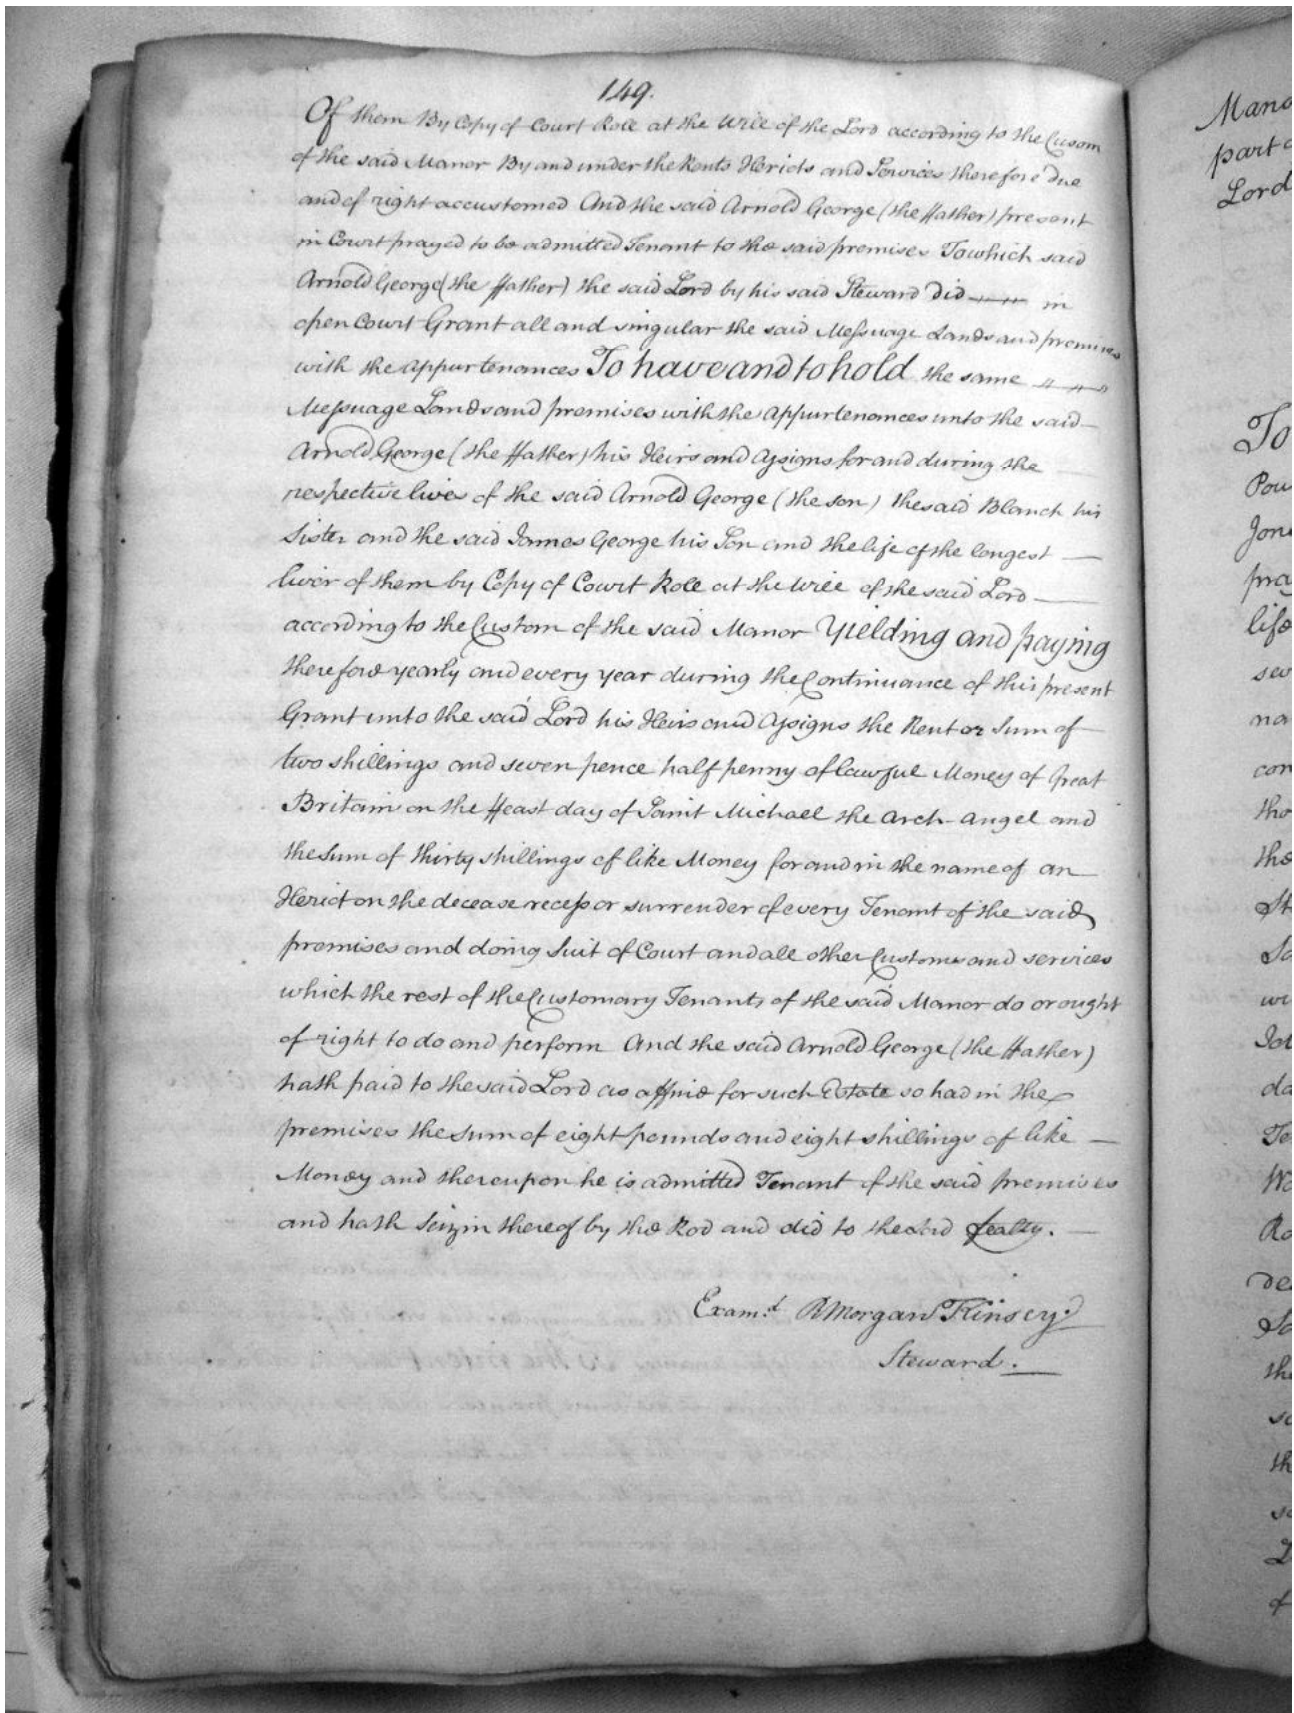 149.
Of them By Copy of Court Roll at the Will of the Lord according to the Cusom
of the said Manor By and under the Rents Heriots and Services therefore due
and of right accustomed And the said Arnold George (the ffather) present
in Court prayed to be admitted Tenant to the said premises To which said
Arnold George (the ffather) the said Lord by his said Steward did in
open Court Grant all and singular the said Messuage Lands and premises
with the appurtenances To have and to hold the same
Messuage Lands and premises with the appurtenances unto the said
Arnold George (the ffather) his Heirs and Assigns for and during the
respective lives of the said Arnold George (the son) the said Blanch his
Sister and the said James George his Son and the life of the longest
liver of them by Copy of Court Roll at the Will of the said Lord
according to the Custom of the said Manor Yielding and paying
therefore yearly and every year during the Continuance of this present
Grant unto the said Lord his Heirs and Assigns the Rent or Sum of
two shillings and seven pence half penny of lawful Money of Great
Britain on the ffeast day of Saint Michael the Arch-Angel and
the Sum of thirty shillings of like Money for and in the name of an
Heriot on the decease recess or surrender of every Tenant of the said
premises and doing Suit of Court and all other Customs and services
which the rest of the Customary Tenants of the said Manor do or ought
of right to do and perform And the said Arnold George (the ffather)
hath paid to the said Lord as a ffine for such Estate so had in the
premises the Sum of eight pounds and eight shillings of like
Money and thereupon he is admitted Tenant of the said premises
and hath Seizin thereof by the Rod and did to the Lord fealty.
Exam.d RMorgan Kinsey
Steward.
Mano
part o
Lord
To
Pou
Jone
pra
life
sev
na
con
tho
the
St
So
wi
Joh
da
Te
Wa
Ro
de
So
the
so
th
so